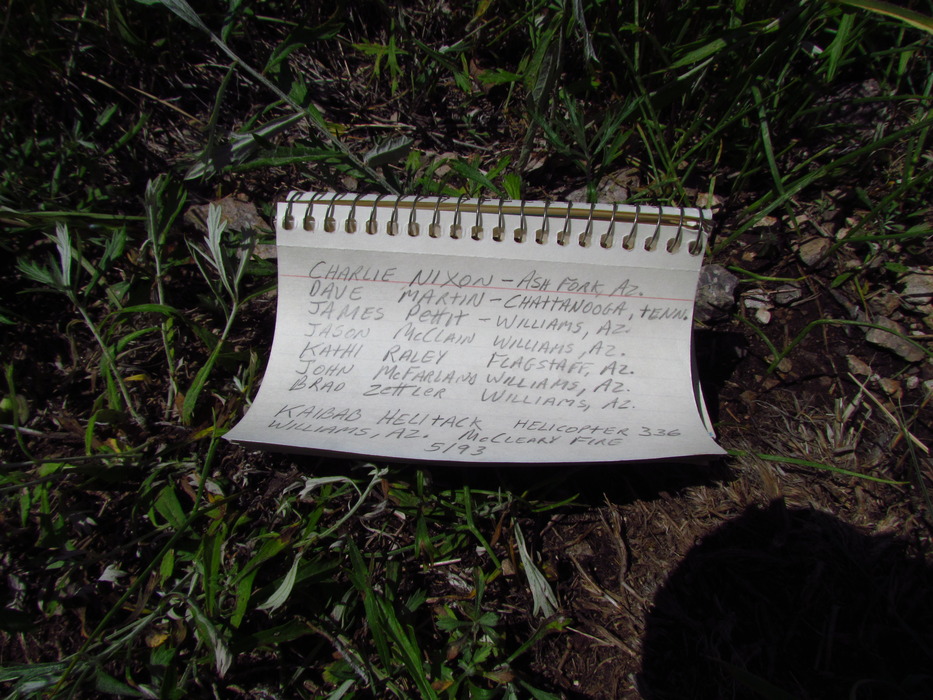 CHARLIE NIXON - ASH FORK AZ.
DAVE MARTIN - CHATTANOOGA, TENN.
JAMES PETTIT - WILLIAMS, AZ.
JASON McCLAIN WILLIAMS, AZ.
KATHI RALEY FLAGSTAFF, AZ.
JOHN McFARLAND WILLIAMS, AZ.
BRAD ZETTLER WILLIAMS, AZ.
KAIBAB HELITACK HELICOPTER 336
WILLIAMS, AZ. McCLEARY FIRE
5/93